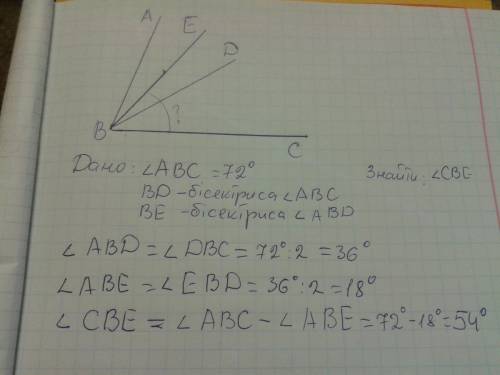 A E D
B ? C
Дано: ∠ABC = 72° Знайти: ∠CBE
BD - бісектриса ∠ABC
BE - бісектриса ∠ABD
∠ABD = ∠DBC = 72°:2 = 36°
∠ABE = ∠EBD = 36°:2 = 18°
∠CBE = ∠ABC - ∠ABE = 72° - 18° = 54°